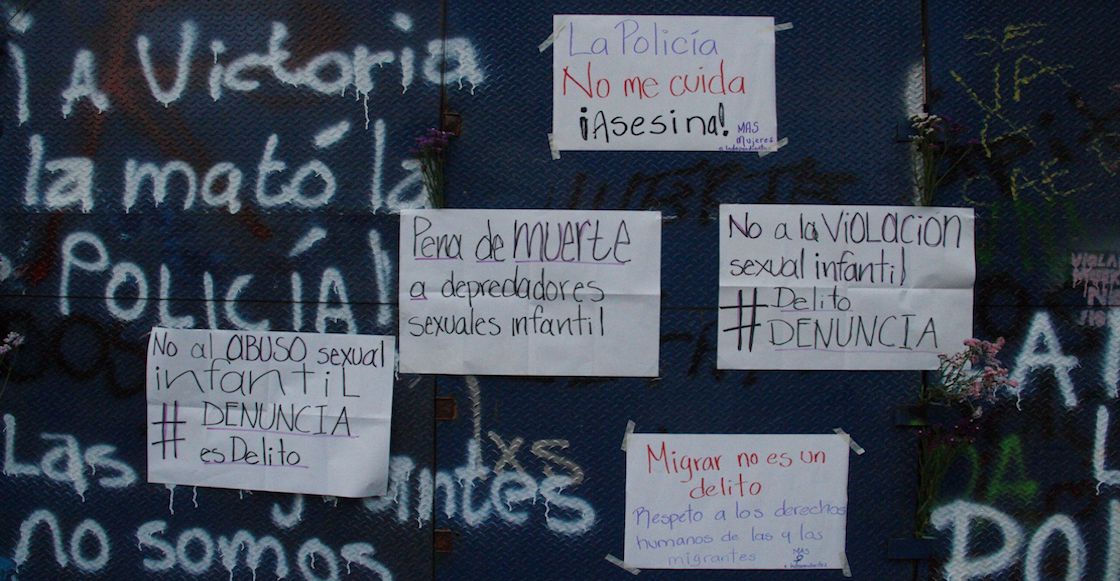 ¡A Victoria
la mató la
POLICÍA!
Las migrantes
no somos
La Policía
No me cuida
¡Asesina!
MAS
Mujeres
Pena de MUERTE
a depredadores
sexuales infantil
No a la VIOLACION
sexual infantil
# Delito
DENUNCIA
No al ABUSO sexual
infantil
# DENUNCIA
es Delito
Migrar no es un
delito
Respeto a los derechos
humanos de las y los
migrantes
MAS
A
L
PO